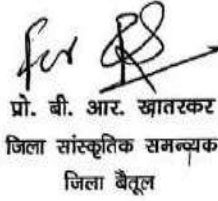 प्रो. बी. आर. खातरकर
जिला सांस्कृतिक समन्वयक
जिला बैतूल